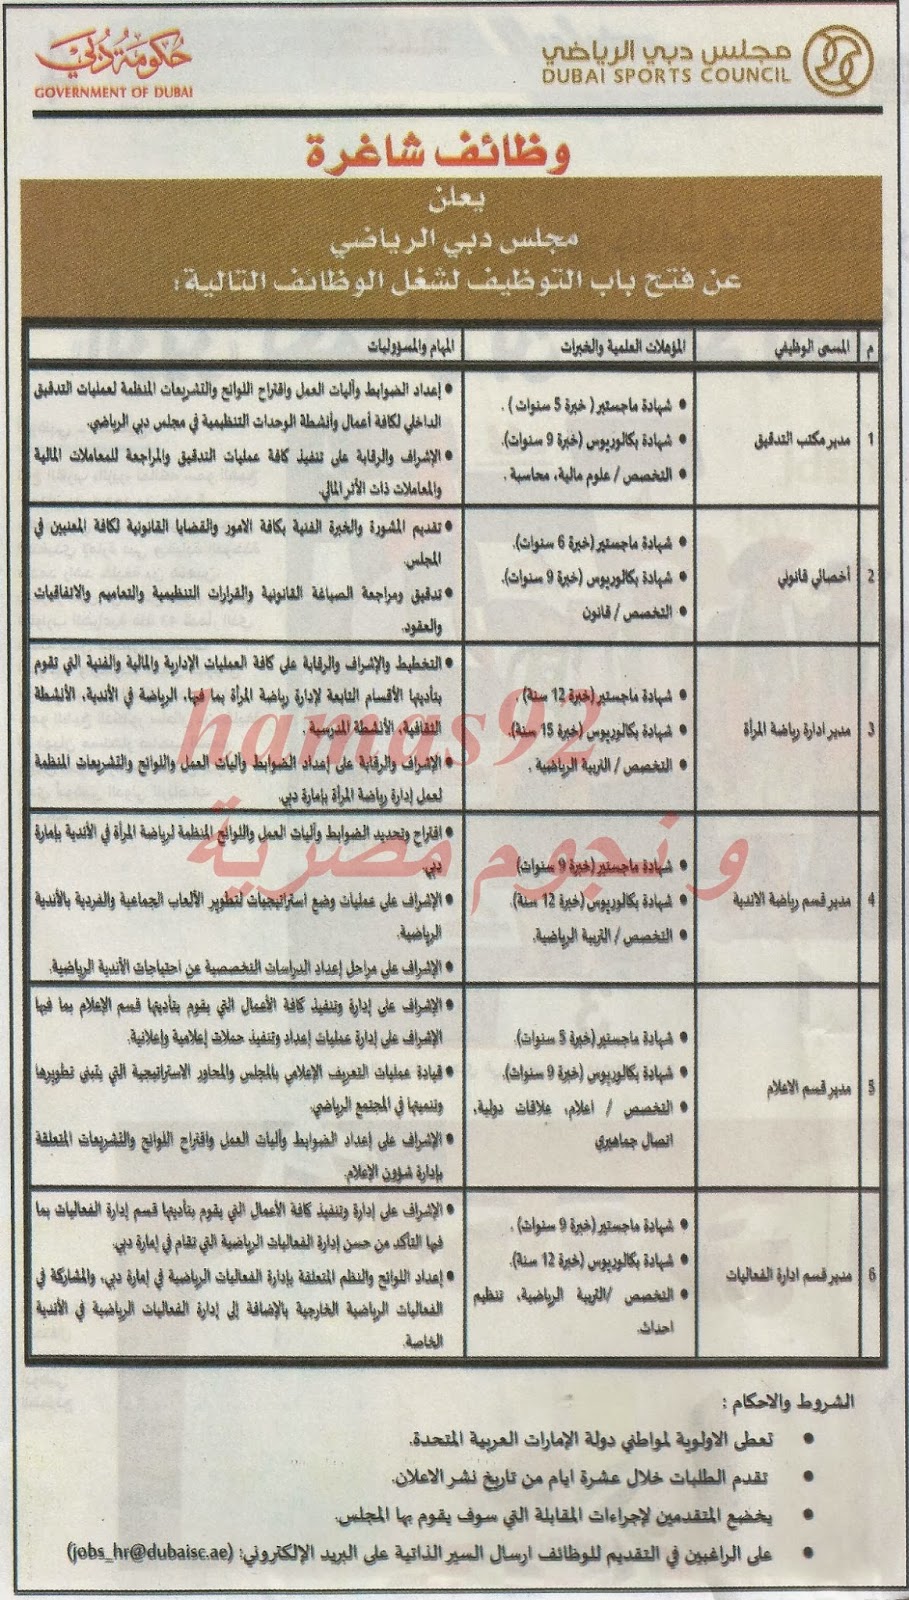 حكومة دبي
GOVERNMENT OF DUBAI
مجلس دبي الرياضي
DUBAI SPORTS COUNCIL
وظائف شاغرة
يعلن
مجلس دبي الرياضي
عن فتح باب التوظيف لشغل الوظائف التالية:
م المسمى الوظيفي المؤهلات العلمية والخبرات المهام والمسؤوليات
1
مدير مكتب التدقيق
• شهادة ماجستير ( خبرة 5 سنوات ) .
• شهادة بكالوريوس (خبرة 9 سنوات).
• التخصص / علوم مالية، محاسبة .
• إعداد الضوابط وآليات العمل واقتراح اللوائح والتشريعات المنظمة لعمليات التدقيق
الداخلي لكافة أعمال وأنشطة الوحدات التنظيمية في مجلس دبي الرياضي.
• الإشراف والرقابة على تنفيذ كافة عمليات التدقيق والمراجعة للمعاملات المالية
والمعاملات ذات الأثر المالي.
2
أخصائي قانوني
• شهادة ماجستير (خبرة 6 سنوات).
• شهادة بكالوريوس (خبرة 9 سنوات).
• التخصص / قانون
• تقديم المشورة والخبرة الفنية بكافة الامور والقضايا القانونية لكافة المعنيين في
المجلس.
• تدقيق ومراجعة الصياغة القانونية والقرارات التنظيمية والتعاميم والاتفاقيات
والعقود.
3
مدير ادارة رياضة المرأة
• شهادة ماجستير (خبرة 12 سنة).
• شهادة بكالوريوس (خبرة 15 سنة).
• التخصص / التربية الرياضية .
• التخطيط والإشراف والرقابة على كافة العمليات الإدارية والمالية والفنية التي تقوم
بتأديتها الأقسام التابعة لإدارة رياضة المرأة بما فيها، الرياضة في الأندية، الأنشطة
الثقافية، الأنشطة المدرسية .
• الإشراف والرقابة على إعداد الضوابط وآليات العمل واللوائح والتشريعات المنظمة
لعمل إدارة رياضة المرأة بإمارة دبي.
4
مدير قسم رياضة الاندية
• شهادة ماجستير (خبرة 9 سنوات)
• شهادة بكالوريوس (خبرة 12 سنة).
• التخصص / التربية الرياضية.
• اقتراح وتحديد الضوابط وآليات العمل واللوائح المنظمة لرياضة المرأة في الأندية بإمارة
دبي.
• الإشراف على عمليات وضع استراتيجيات لتطوير الألعاب الجماعية والفردية بالأندية
الرياضية.
• الإشراف على مراحل إعداد الدراسات التخصصية عن احتياجات الأندية الرياضية.
5
مدير قسم الاعلام
• شهادة ماجستير (خبرة 5 سنوات).
• شهادة بكالوريوس (خبرة 9 سنوات).
• التخصص / اعلام، علاقات دولية،
اتصال جماهيري
• الإشراف على إدارة وتنفيذ كافة الأعمال التي يقوم بتأديتها قسم الإعلام بما فيها
الإشراف على إدارة عمليات إعداد وتنفيذ حملات إعلامية وإعلانية.
• قيادة عمليات التعريف الإعلامي بالمجلس والمحاور الاستراتيجية التي يتبنى تطويرها
وتنميتها في المجتمع الرياضي.
• الإشراف على إعداد الضوابط وآليات العمل واقتراح اللوائح والتشريعات المتعلقة
بإدارة شؤون الإعلام.
6
مدير قسم ادارة الفعاليات
• شهادة ماجستير (خبرة 9 سنوات) .
• شهادة بكالوريوس (خبرة 12 سنة).
• التخصص /التربية الرياضية، تنظيم
احداث.
• الإشراف على إدارة وتنفيذ كافة الأعمال التي يقوم بتأديتها قسم إدارة الفعاليات بما
فيها التأكد من حسن إدارة الفعاليات الرياضية التي تقام في إمارة دبي.
• إعداد اللوائح والنظم المتعلقة بإدارة الفعاليات الرياضية في إمارة دبي، والمشاركة في
الفعاليات الرياضية الخارجية بالإضافة إلى إدارة الفعاليات الرياضية في الأندية
الخاصة.
hamas92
و نجوم مصرية
الشروط والاحكام :
• تعطى الاولوية لمواطني دولة الإمارات العربية المتحدة.
• تقدم الطلبات خلال عشرة ايام من تاريخ نشر الاعلان.
• يخضع المتقدمين لإجراءات المقابلة التي سوف يقوم بها المجلس.
• على الراغبين في التقديم للوظائف ارسال السير الذاتية على البريد الإلكتروني: (jobs_hr@dubaisc.ae)